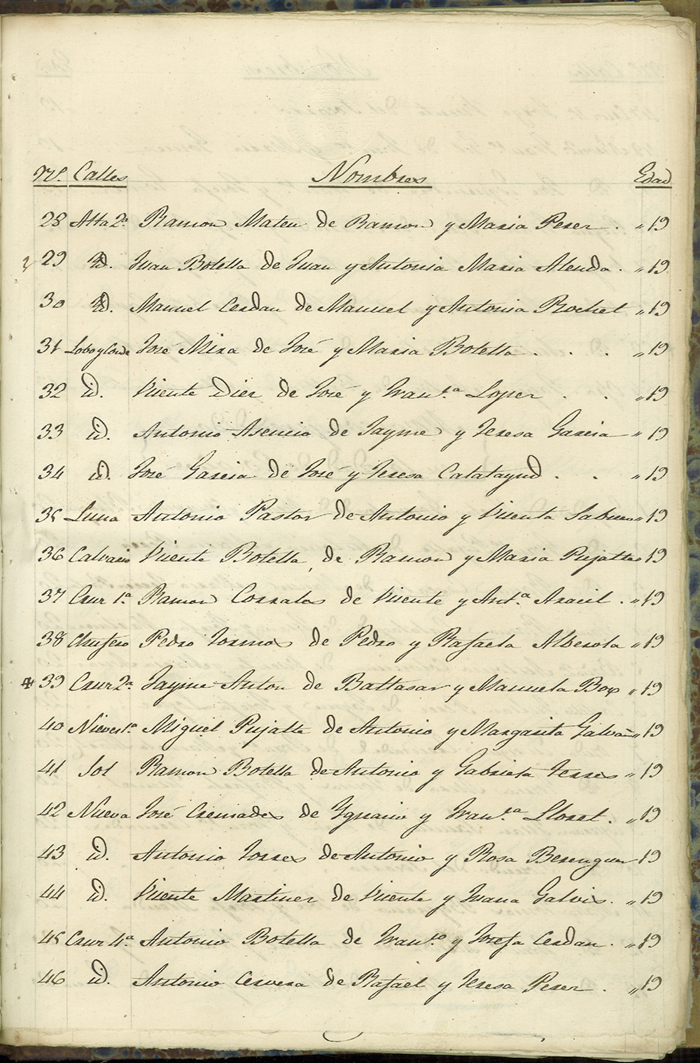 Nº Calles Nombres Edad
28 Alta 2ª Ramon Mateu de Ramon y Maria Perez . „ 19
29 id. Juan Botella de Juan y Antonia Maria Alenda . „ 19
30 id. Manuel Cerdan de Manuel y Antonia Rochel „ 19
31 Jose Mira de José y Maria Botella . . . „ 19
32 id. Vicente Diez de José y Fran.ca Lopez . . „ 19
33 id. Antonio Asencio de Jayme y Teresa Garcia „ 19
34 id. Jose Garcia de José y Teresa Calatayud . . „ 19
35 Luna Antonio Pastor de Antonio y Vicenta „ 19
36 Calvario Vicente Botella de Ramon y Maria Pujalte „ 19
37 Cruz 1ª Ramon Corrales de Vicente y Ant.ª Aracil . „ 19
38 Pedro Tormos de Pedro y Rafaela Alberola „ 19
39 Cruz 2ª Jayme Anton de Baltasar y Manuela Boix „ 19
40 Nieves 1ª Miguel Pujalte de Antonio y Margarita Galvañ „ 19
41 Sol Ramon Botella de Antonio y Gabriela Torres „ 19
42 Nueva José Cremades de Ygnacio y Fran.ca Lloret . „ 19
43 id. Antonio Torres de Antonio y Rosa Berenguer 19
44 id. Vicente Martinez de Vicente y Juana Galvis . „ 19
45 Cruz 4ª Antonio Botella de Fran.co y Josefa Cerdan . „ 19
46 id. Antonio Cervera de Rafael y Teresa Perez . „ 19